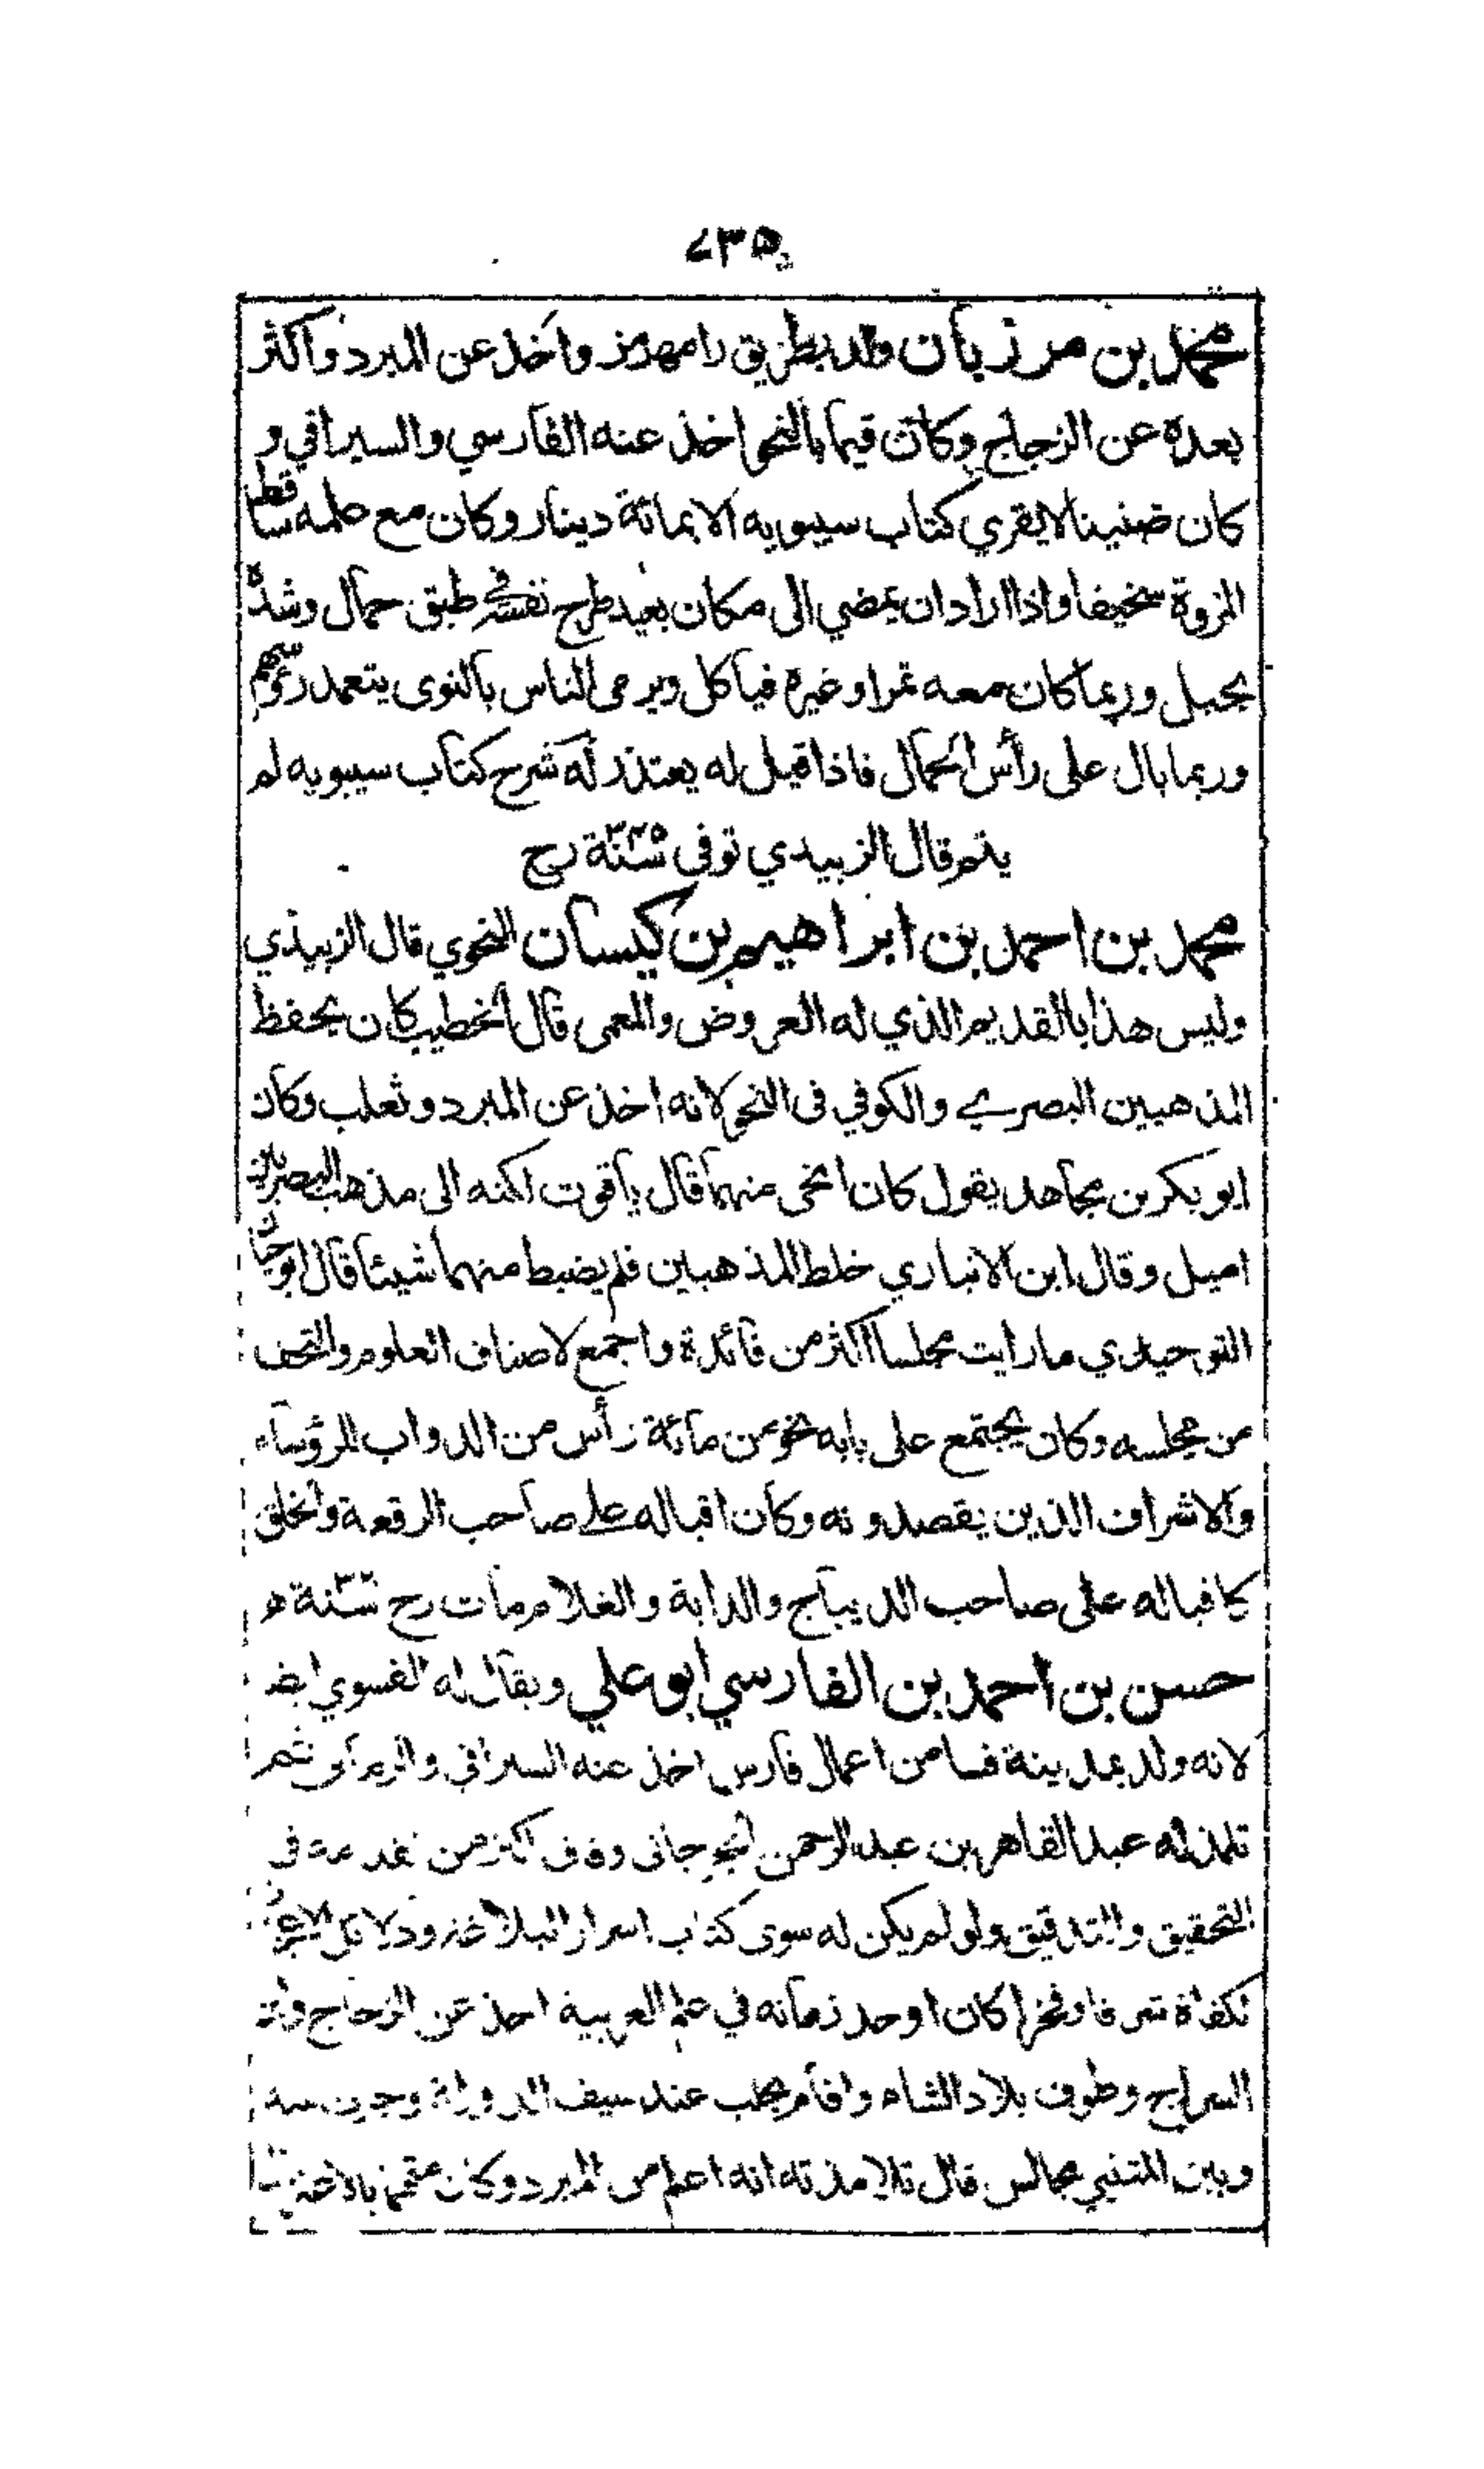 ٥٣٧
محمد بن مرزبان ولد بطريق رامهرمز واخذ عن المبرد واكثر
بعده عن الزجاج وكان قيما بالنحو اخذ عنه الفارسي والسيرافي و
كان ضنينا لا يقري كتاب سيبويه الا بمائة دينار وكان مع علمه ساقط
المروة سخيفا واذا اراد ان يمضي الى مكان بعيد طرح نفسه في طبق حمال وشده
بحبل وربما كان معه تمرا وغيره فياكل ويرمى الناس بالنوى يتعمد رؤسهم
وربما بال على رأس الحمال فاذا قيل له يعتذر له شرح كتاب سيبويه لم
يتم قال الزبيدي توفى ٣٤٥ سنة رح
محمد بن احمد بن ابراهيم بن كيسان النحوي قال الزبيدي
وليس هذا بالقديم الذي له العروض والمعمى قال الخطيب كان يحفظ
المذهبين البصري والكوفي فى النحو لانه اخذ عن المبرد وثعلب وكان
ابو بكر بن مجاهد يقول كان انحى منهما قال ياقوت لكنه الى مذهب البصريين
اميل وقال ابن الانباري خلط المذهبين فلم يضبط منهما شيئا قال ابو حيان
التوحيدي ما رايت مجلسا اكثر من فائدة واجمع لاصناف العلوم والتحف
من مجلسه وكان يجتمع على بابه نحو من مائة رأس من الدواب للرؤساء
والاشراف الذين يقصدونه وكان اقباله على صاحب الرقعة والخلق
كاقباله على صاحب الديباج والدابة والغلام مات رح سنة ه
حسن بن احمد بن الفارسي ابو علي ويقال له الفسوي ايضا
لانه ولد بمدينة فسا من اعمال فارس اخذ عنه السيرافي ثم
تلمذ له عبد القاهر بن عبد الرحمن الجرجانى وفاق اكثر من تقدمه فى
التحقيق والتدقيق ولو لم يكن له سوى كتاب اسرار البلاغة ودلائل الاعجاز
لكفاه شرفا وفخرا كان اوحد زمانه في علم العربية اخذ عن الزجاج وابن
السراج وطوف بلاد الشام واقام بحلب عند سيف الدولة وجرت بينه
وبين المتنبي مجالس قال تلامذته انه اعلم من المبرد وكان متهما بالاعتزال